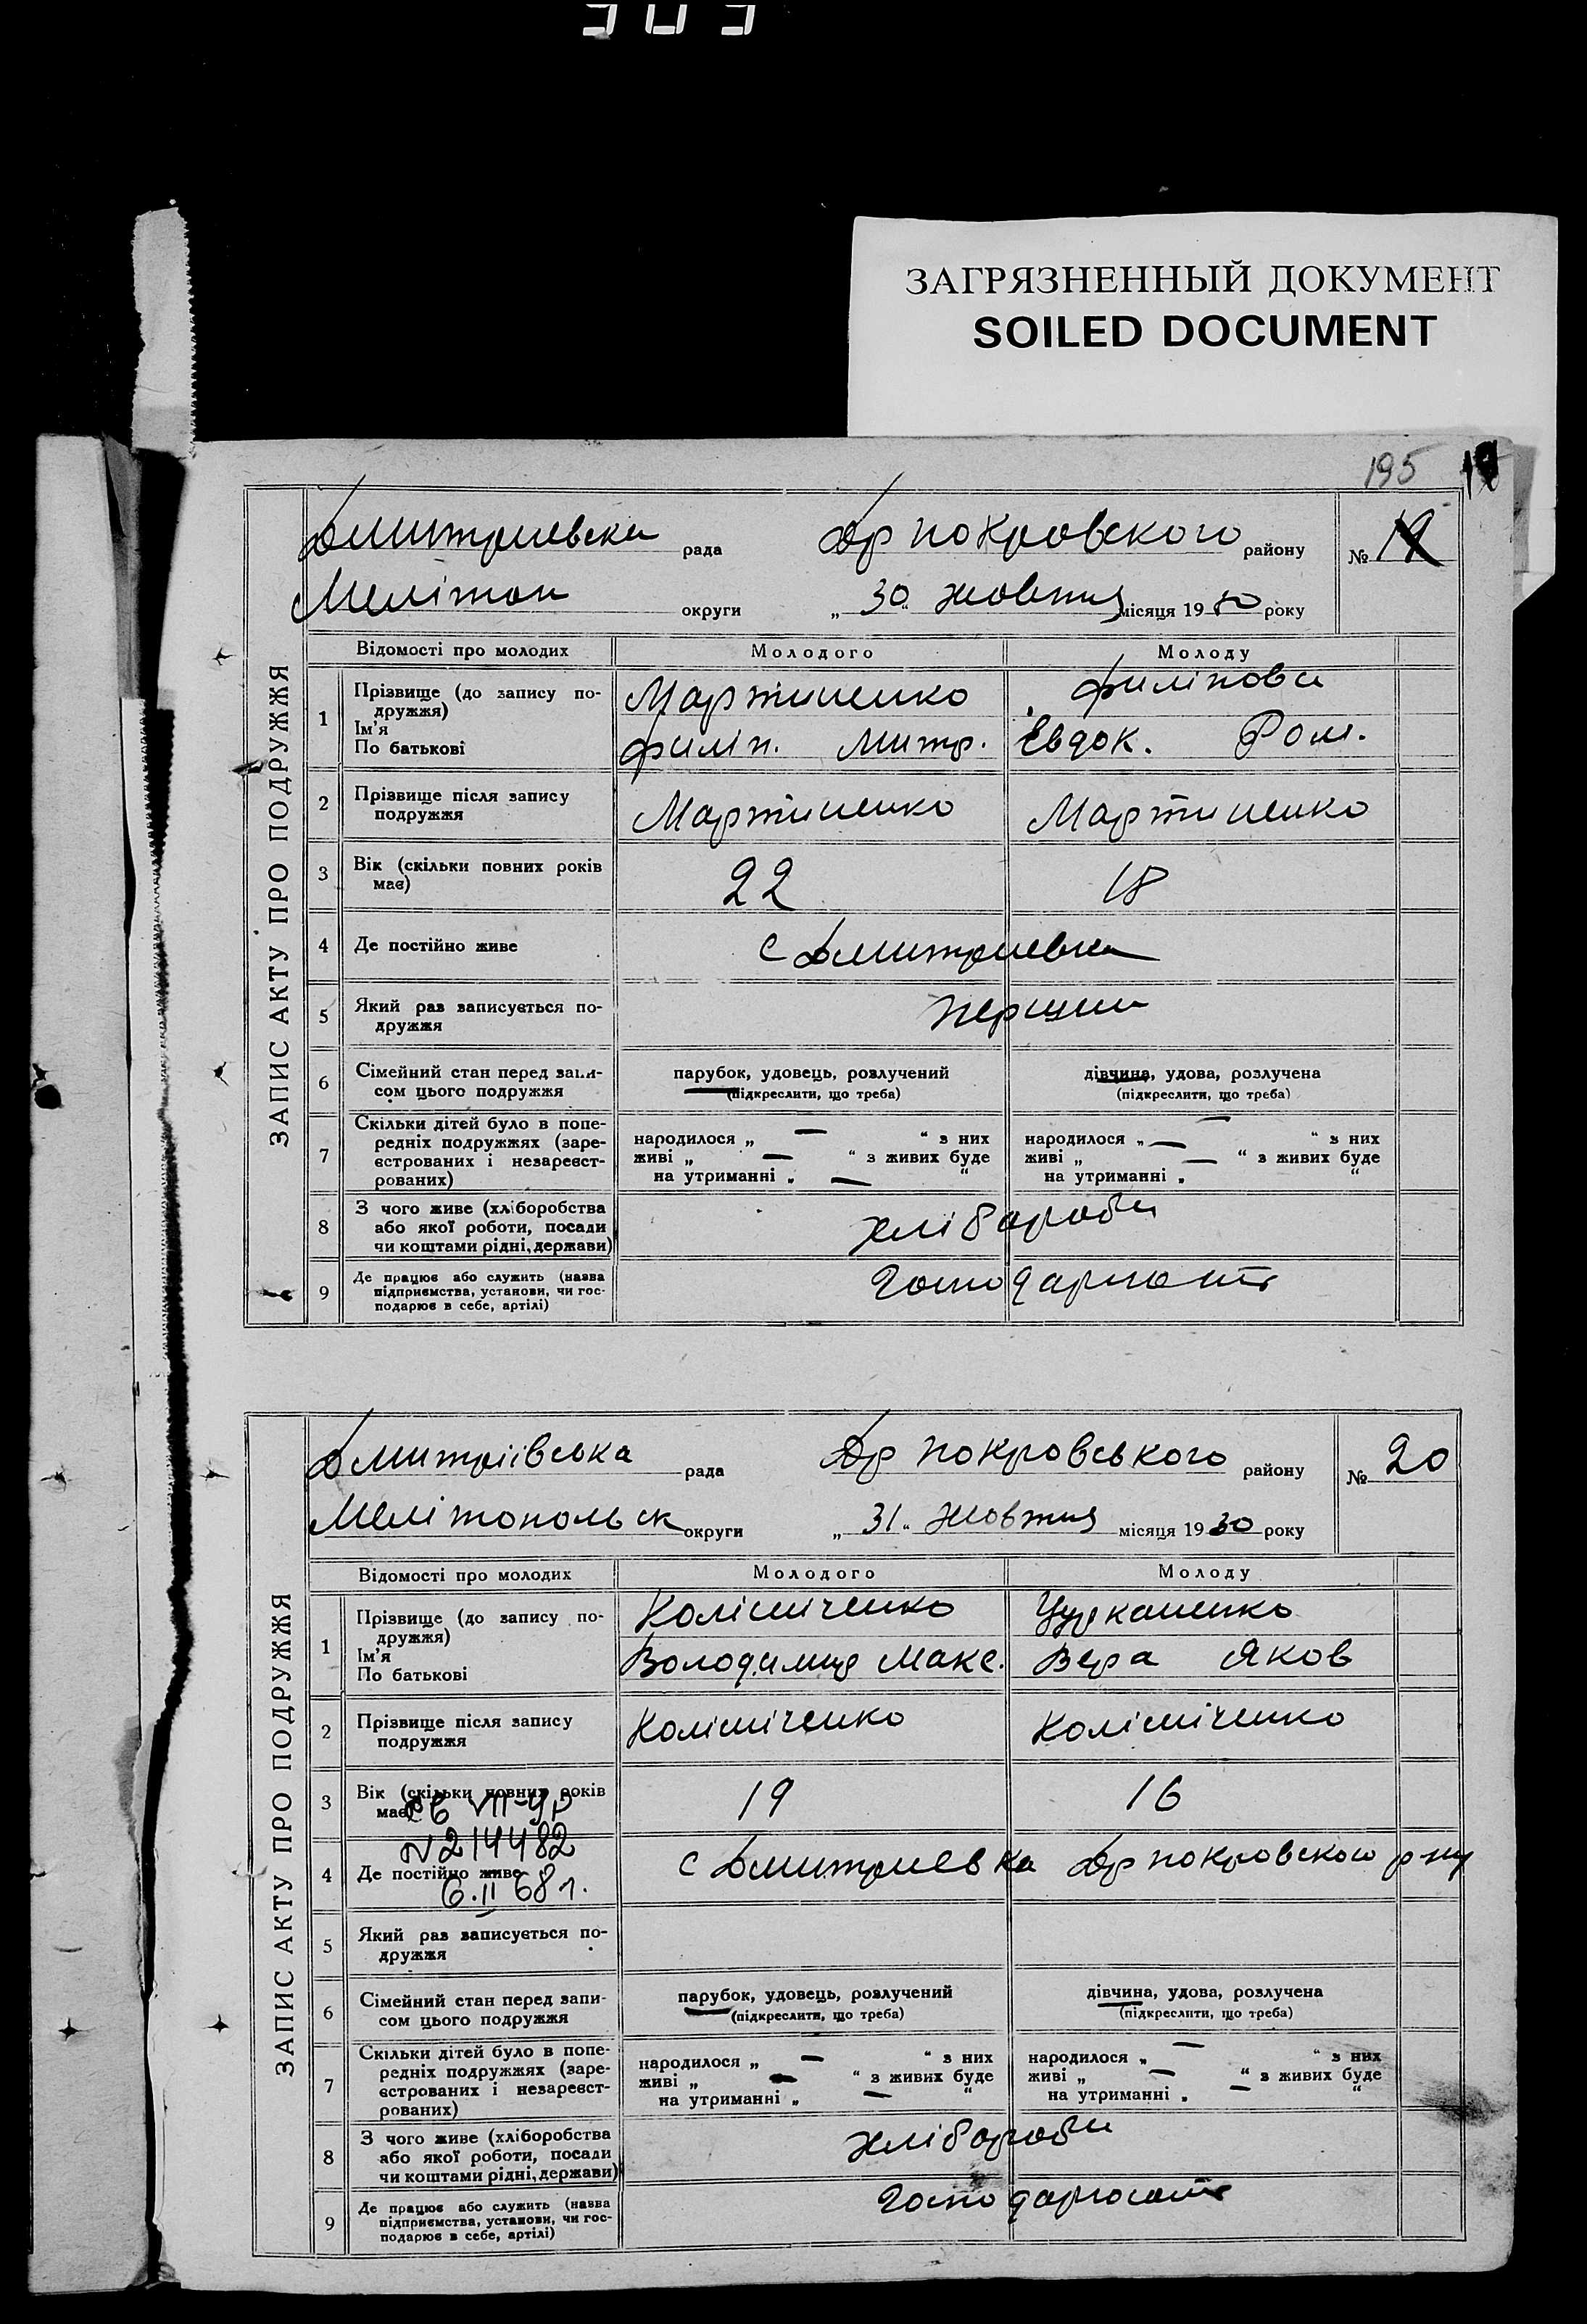 303
ЗАГРЯЗНЕННЫЙ ДОКУМЕНТ
SOILED DOCUMENT
195
ЗАПИС АКТУ ПРО ПОДРУЖЖЯ
Дмитриевска рада Др покровского району № 19
Мелітоп округи „ 30 “ жовтня місяця 1930 року
Відомості про молодих Молодого Молоду
1 Прізвище (до запису по-
дружжя)
Ім’я
По батькові
Мартиненко Филіпова
Филіп. Митр. Евдок. Ром.
2 Прізвище після запису
подружжя
Мартиненко Мартиненко
3 Вік (скільки повних років
має)
22 18
4 Де постійно живе с Дмитриевка
5 Який раз записується по-
дружжя
перший
6 Сімейний стан перед запи-
сом цього подружжя
парубок, удовець, розлучений дівчина, удова, розлучена
(підкреслити, що треба) (підкреслити, що треба)
7 Скільки дітей було в попе-
редніх подружжях (заре-
єстрованих і незареєст-
рованих)
народилося „ — “ з них народилося „ — “ з них
живі „ — “ з живих буде живі „ — “ з живих буде
на утриманні „ — “ на утриманні „ “
8 З чого живе (хліборобства
або якої роботи, посади
чи коштами рідні, держави)
хлібороби
9 Де працює або служить (назва
підприємства, установи, чи гос-
подарює в себе, артілі)
Господарюють
ЗАПИС АКТУ ПРО ПОДРУЖЖЯ
Дмитріівська рада Др покровського району № 20
Мелітопольск округи „ 31 “ жовтня місяця 1930 року
Відомості про молодих Молодого Молоду
1 Прізвище (до запису по-
дружжя)
Ім’я
По батькові
Колісніченко Цурканенко
Володимир Макс. Вера Яков
2 Прізвище після запису
подружжя
Колісніченко Колісніченко
3 Вік (скільки повних років
має)
19 16
N 214482
6.II 68 г.
4 Де постійно живе с Дмитриевка Др покровского р-ну
5 Який раз записується по-
дружжя
6 Сімейний стан перед запи-
сом цього подружжя
парубок, удовець, розлучений дівчина, удова, розлучена
(підкреслити, що треба) (підкреслити, що треба)
7 Скільки дітей було в попе-
редніх подружжях (заре-
єстрованих і незареєст-
рованих)
народилося „ — “ з них народилося „ — “ з них
живі „ — “ з живих буде живі „ — “ з живих буде
на утриманні „ — “ на утриманні „ — “
8 З чого живе (хліборобства
або якої роботи, посади
чи коштами рідні, держави)
хлібороби
9 Де працює або служить (назва
підприємства, установи, чи гос-
подарює в себе, артілі)
Господарюють